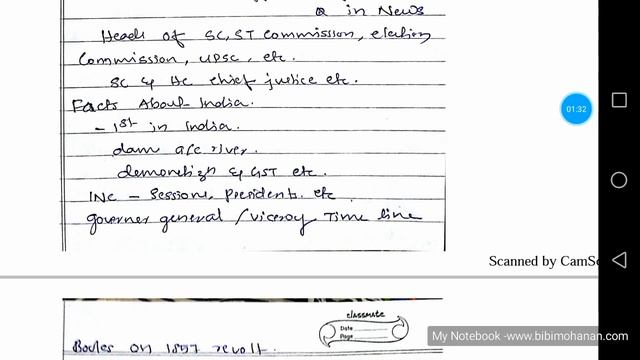 Q in News
Heads of SC, ST Commission, election
Commission, UPSC, etc.
SC & HC chief justice etc.
Facts About India.
- 1st in India.
dam a/c river.
demonetizn & GST etc.
INC - Sessions, presidents. etc
governer general / viceroy Time line
Scanned by CamSc
classmate
Date
Page
Books on 1857 revolt.
01:32
My Notebook -www.bibimohanan.com